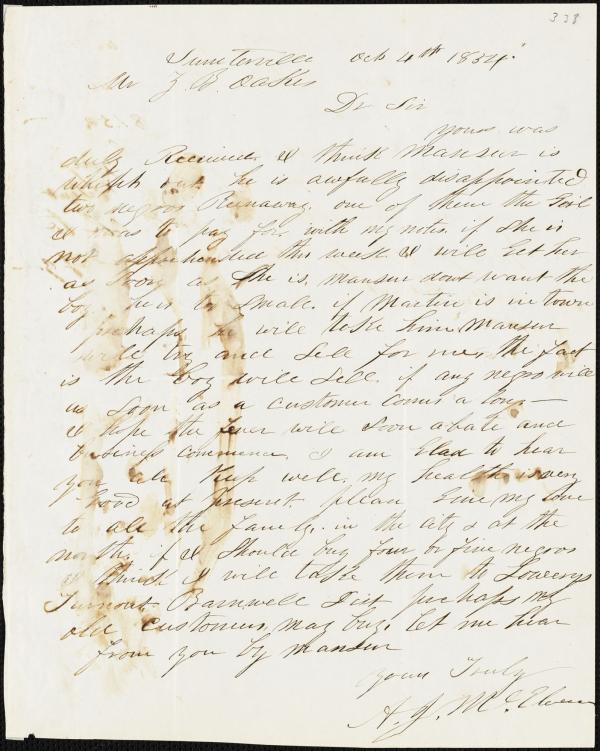 338
Sumterville Oct 4th 1854
Mr Z. B. Oakes
Dr Sir
yours was
duly Received. I think Manser is
he is awfully disappointed
two negros Runaway. one of them the Girl
I was to pay for, with my notes. if she is
not apprehended this week I will Get her
as Soon as She is. Manser dont want the
boy. he is to Small. if Martin is in town
perhaps he will take him. Manser
will try and Sell for me, the fact
is the boy will Sell. if any negro will
as Soon as a customer coms a long —
I hope the fever will Soon abate and
business commence. I am Glad to hear
you all Keep well. my health is very
Good at Present. please Give my love
to all the family. in the city & at the
north. if I should buy four or five negros
I think I will take them to Lowerys
Turnout Barnwell Dist perhaps my
old customers may buy. let me hear
from you by Manser
yours Truly
A. J. McElveen